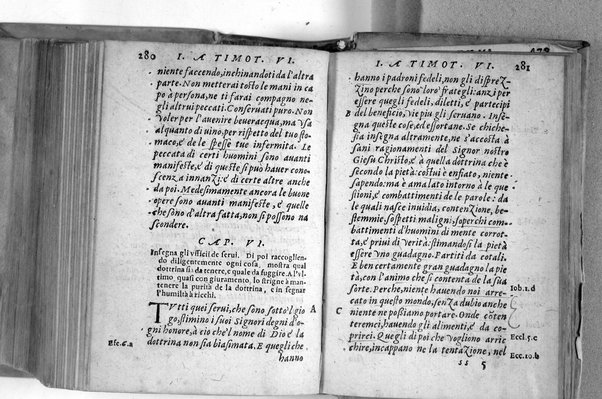 280 I. A TIMOT. VI.
niente facendo, inchinandoti da l'altra
parte. Non metterai tosto le mani in ca
po à persona, ne ti farai compagno ne
gli altrui peccati. Conseruati puro. Non
voler per l'auenire beueracqua, ma vsa
alquanto di uino, per rispetto del tuo sto-
maco, e de le spesse tue infermita. Le
peccata di certi huomini sono auanti
manifeste, e di questi si può hauer cono-
scenza innanzi: e di certe altre anche
da poi. Medesimamente ancora le buone
opere sono auanti manifeste, e quelle
che sono d'altra fatta, non si possono na
scondere.
CAP. VI.
Insegna gli vfficii de serui. Di poi raccoglien-
do diligentemente ogni cosa, mostra qual
dottrina sia da tenere, e quale da fuggire. A l'vl
timo, quasi con giuramento, lo strigne à man-
tenere la purità de la dottrina, e in segnar
l'humiltà à ricchi.
TVtti quei serui, che sono sotto'l gio A
go, stimino i suoi Signori degni d'o-
gni honore, à cio che'l nome di Dio e la
Efe. 6.a dottrina non sia biasimata. E quegli che
hanno
I. A TIMOT. VI. 281
hanno i padroni fedeli, non gli disprez-
zino perche sono loro frategli: anzi per
essere quegli fedeli, diletti, e partecipi
B del beneficio, vie piu gli seruano. Inse-
gna queste cose, ed essortane. Se chiche-
sia insegna altramente, ne s'accosta à
sani ragionamenti del Signor nostro
Giesu Christo, e à quella dottrina che è
secondo la pietà: costui è enfiato, niente
sapendo: ma è amalato intorno à le que
stioni, e combattimenti de le parole: da
le quali nasce inuidia, contenzione, be-
stemmie, sospetti maligni, soperchi com-
battimenti d'huomini di mente corrot-
ta, e priui di verità: stimandosi la pietà
essere vno guadagno. Partiti da cotali.
E ben certamente gran guadagno la pie
tà, con l'animo che si contenta de la sua
sorte. Perche, niente hauendo noi arre- Iob. 1.d
cato in questo mondo, senza dubio anche
C niente ne possiamo portare. Onde cōten
teremci, hauendo gli alimenti, e da co-
prirci. Quegli di poi che vogliono arric Eccl. 5.c
chire, incappano ne la tentazione, nel Ecc. 10.b
ss 5